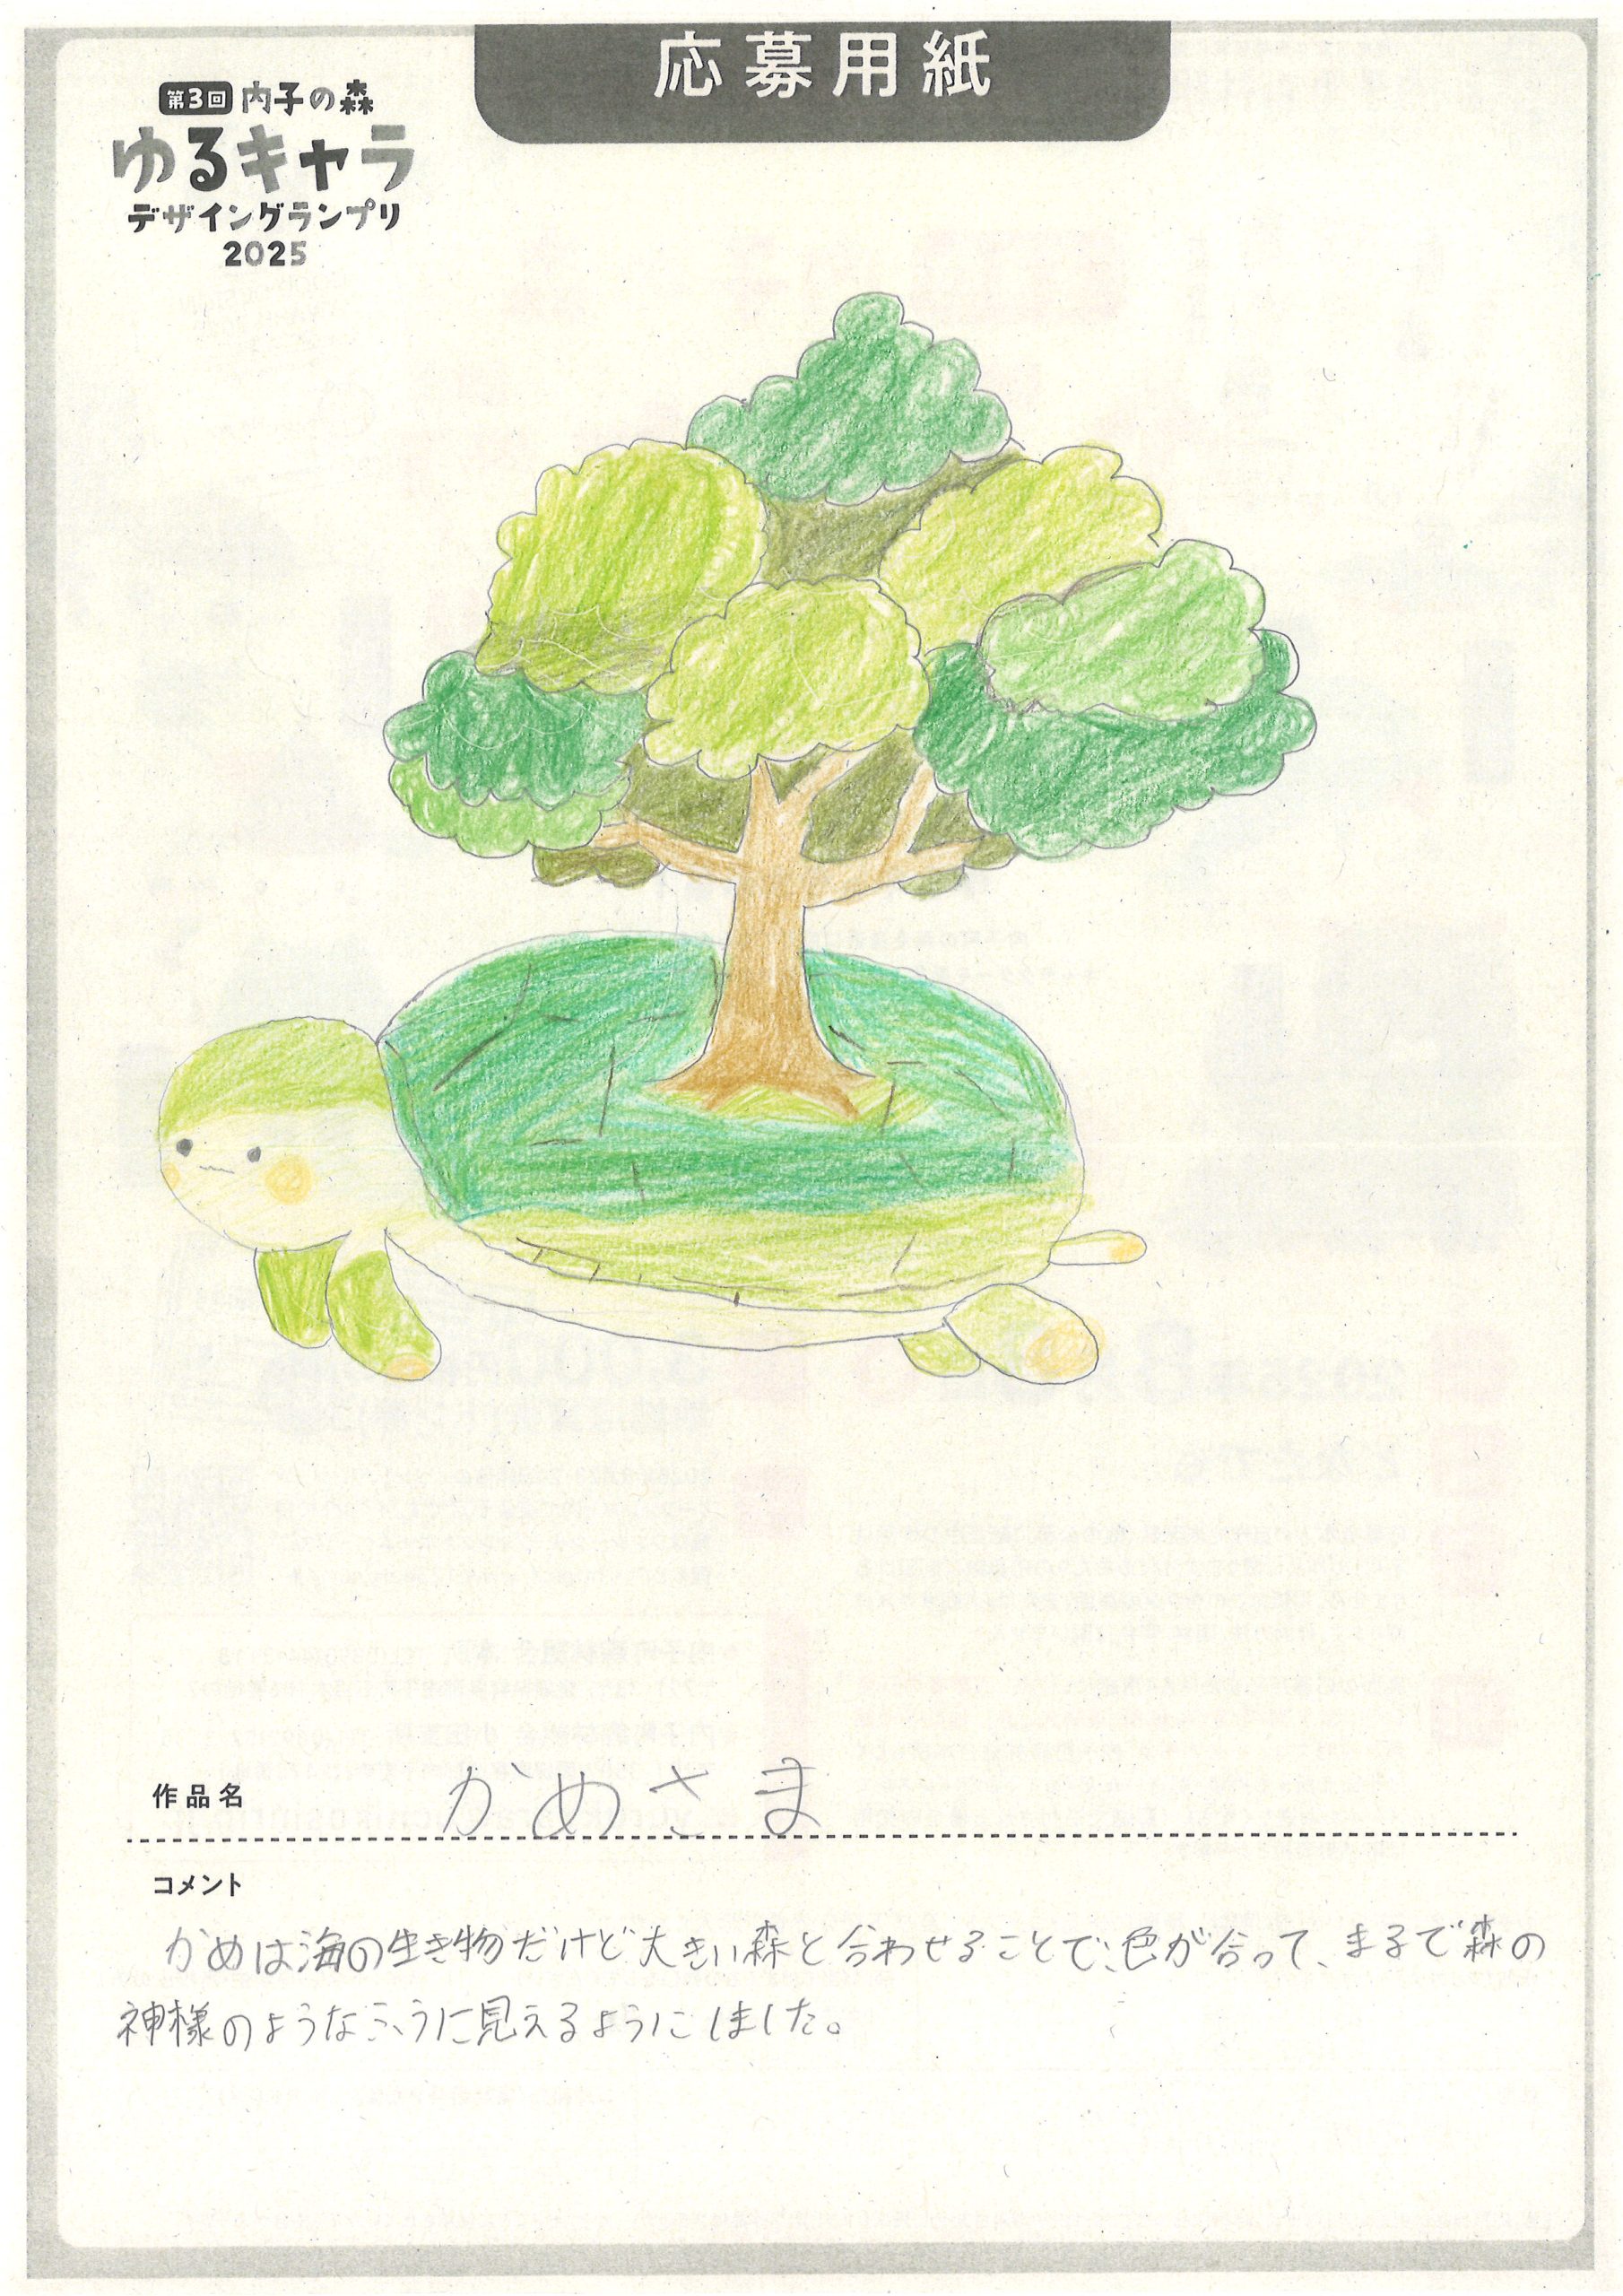 応募用紙
第3回 内子の森
ゆるキャラ
デザイングランプリ
2025
作品名 かめさま
コメント
かめは海の生き物だけど大きい森と合わせることで、色が合って、まるで森の
神様のようなふうに見えるようにしました。